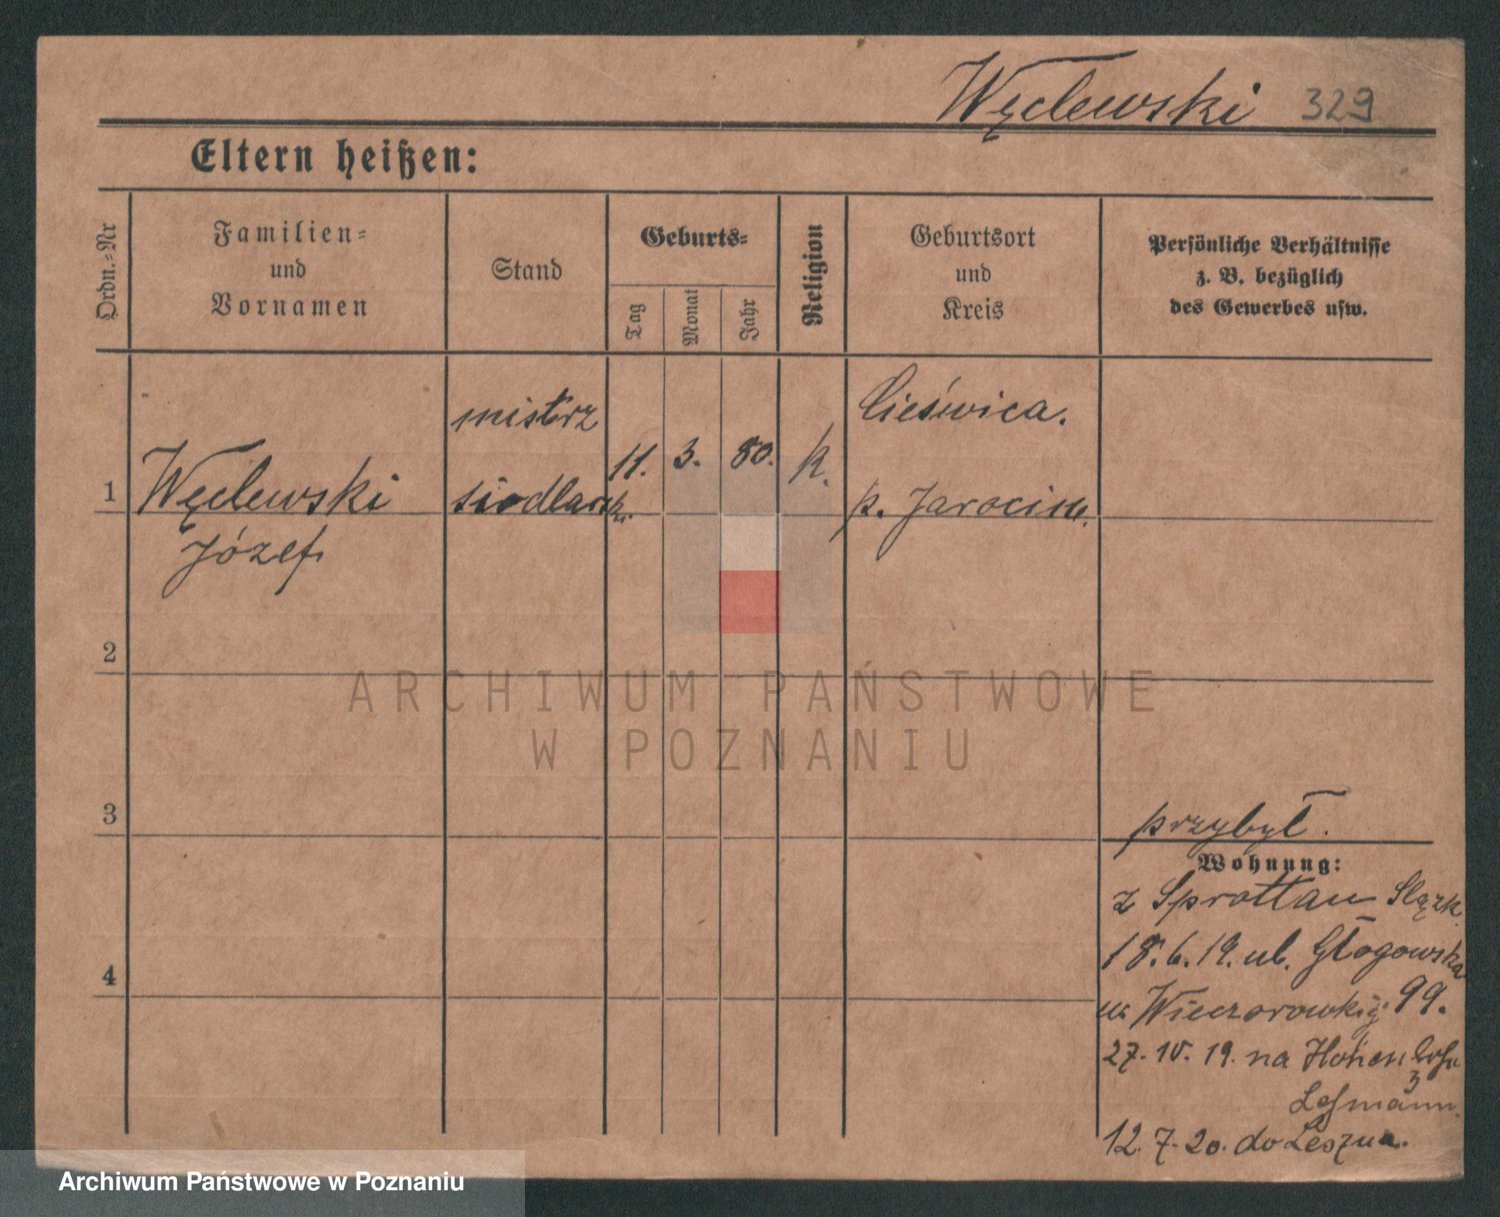 Węclewski 329
Eltern heißen:
Ordn.-Nr
Familien-
und
Vornamen
Stand
Geburts-
Tag
Monat
Jahr
Religion
Geburtsort
und
Kreis
Persönliche Verhältnisse
z. B. bezüglich
des Gewerbes usw.
1
Węclewski
Józef
mistrz
siodlarsk.
11. 3. 80. k.
Cieświca.
p. Jarocin.
2
3
4
przybył.
Wohnung:
z Sprottau Slązk.
18.6.19. ul. Głogowska
u. 99.
27. 10. 19. na
3
12. 7. 20. do Leszna.
ARCHIWUM PAŃSTWOWE
W POZNANIU
Archiwum Państwowe w Poznaniu